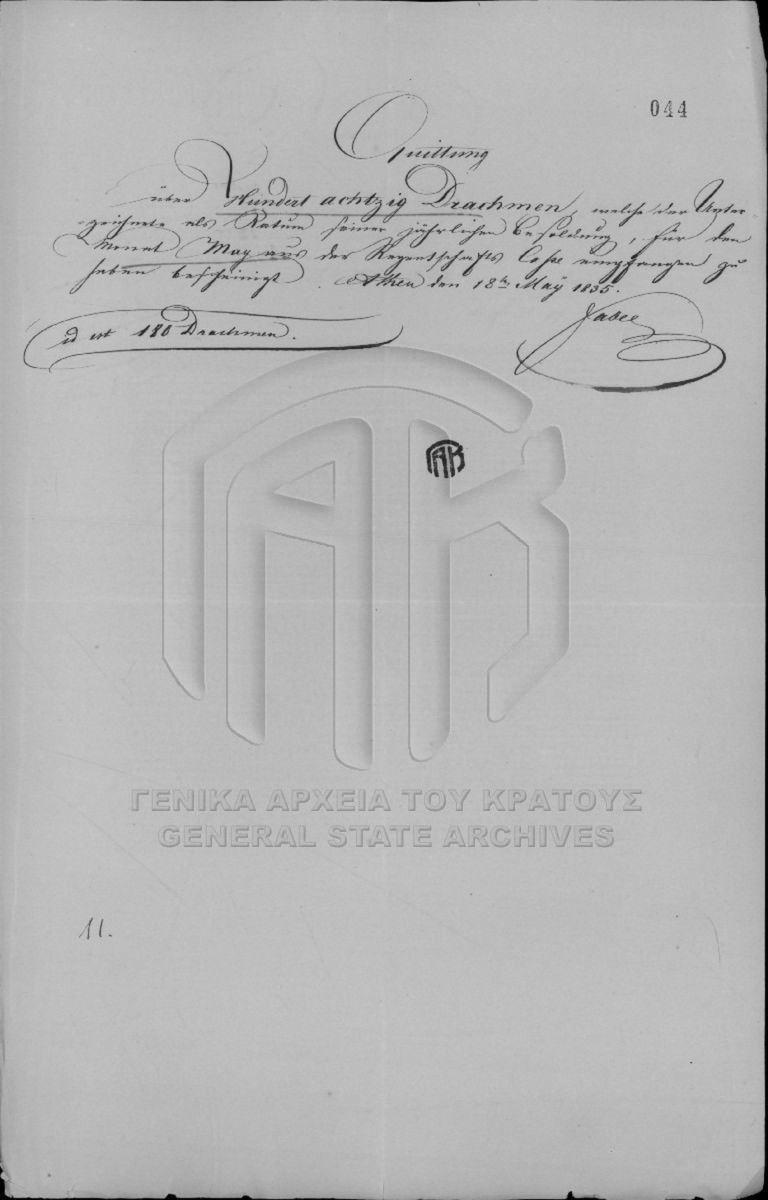 044
Quittung
über Hundert achtzig Drachmen, welche der Unter-
zeichnete als Ratum seiner jährlichen Besoldung, für den
Monat May aus der Regentschafts Casse empfangen zu
haben bescheinigt. Athen den 18ten May 1835.
id est 180 Drachmen.
ΓΑΚ
ΓΕΝΙΚΑ ΑΡΧΕΙΑ ΤΟΥ ΚΡΑΤΟΥΣ
GENERAL STATE ARCHIVES
11.